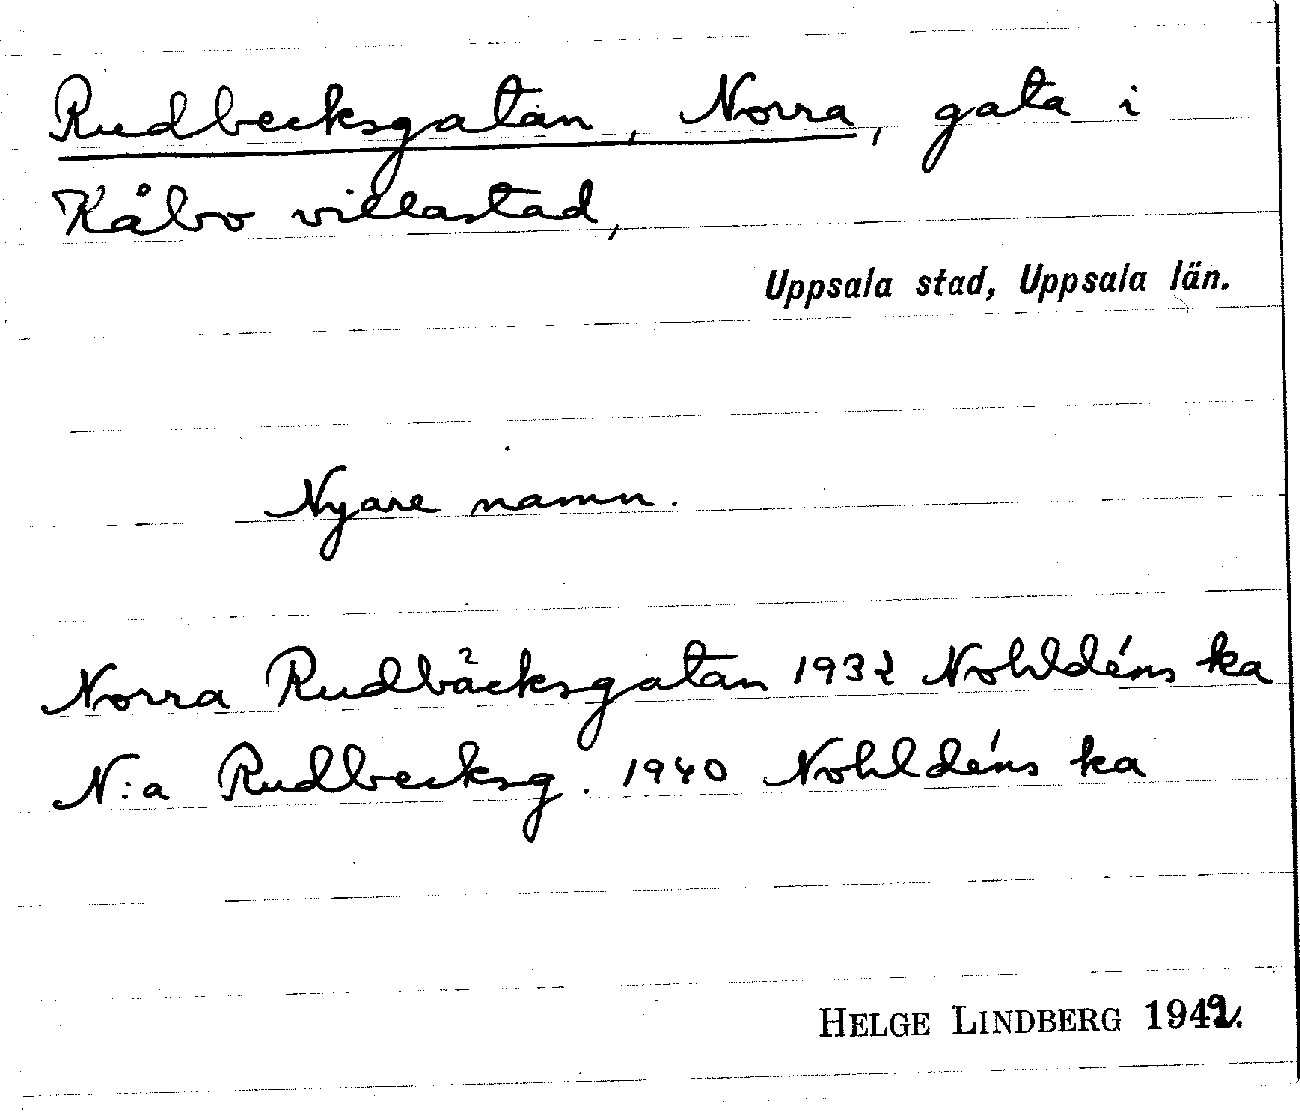 Rudbecksgatan, Norra, gata i
Kåbo villastad,
Uppsala stad, Uppsala län.
Nyare namn.
Norra Rudbäcksgatan 1932 Nohldéns ka
N:a Rudbecksg. 1940 Nohldéns ka
HELGE LINDBERG